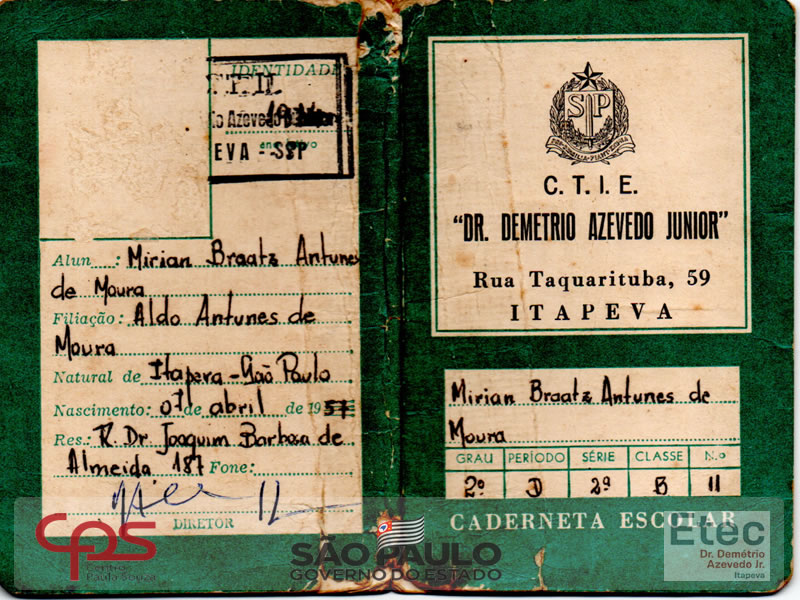 IDENTIDADE
Azevedo
EVA - SSP
Alun : Mirian Braatz Antunes
de Moura
Filiação: Aldo Antunes de
Moura
Natural de Itapeva - São Paulo
Nascimento: 07 de abril de 1957
Res.: R. Dr. Joaquim Barboza de
Almeida 187 Fone:
DIRETOR
SP
C. T. I. E.
"DR. DEMETRIO AZEVEDO JUNIOR"
Rua Taquarituba, 59
ITAPEVA
Mirian Braatz Antunes de
Moura
GRAU PERÍODO SÉRIE CLASSE N.o
2º D 2ª B 11
CADERNETA ESCOLAR
cps
Centro
Paula Souza
SÃO PAULO
GOVERNO DO ESTADO
Etec
Dr. Demétrio
Azevedo Jr.
Itapeva